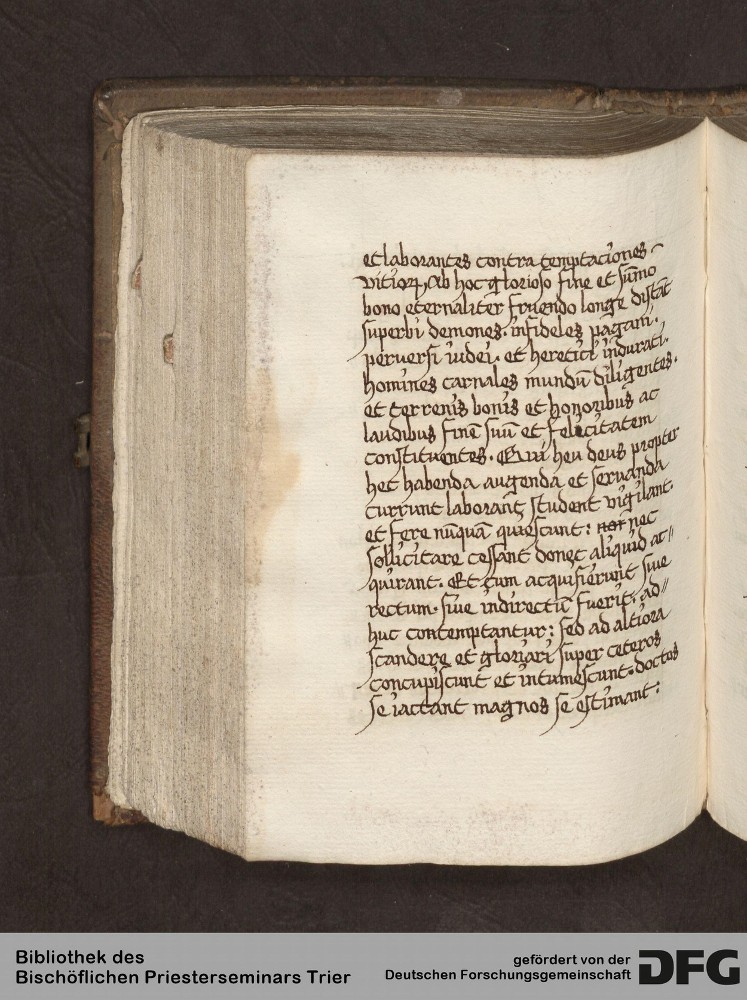 et laborantes contra temptaciones
vitioꝝ, Ab hoc glorioso fine et sūmo
bono eternaliter fruendo longe distāt
superbi demones. infideles pagani.
perversi iudei. et heretici indurati.
homines carnales mundū diligentes.
et terrenis bonis et honoribus ac
laudibus finē suū et felicitatem
constituentes. Qui heu deus propter
hec habenda augenda et servanda
currunt laborant student vigilant
et fere nūquā quiescunt: nec
sollicitare cessant donec aliquid ac〃
quirant. Et cum acquisierint sive
rectum. sive indirectū fuerit. ad〃
huc contemptantur: sed ad altiora
scandere et gloriari super ceteros
concupiscunt et intumescunt. doctos
se iactant magnos se estimant:
Bibliothek des
Bischöflichen Priesterseminars Trier
gefördert von der
Deutschen Forschungsgemeinschaft
DFG